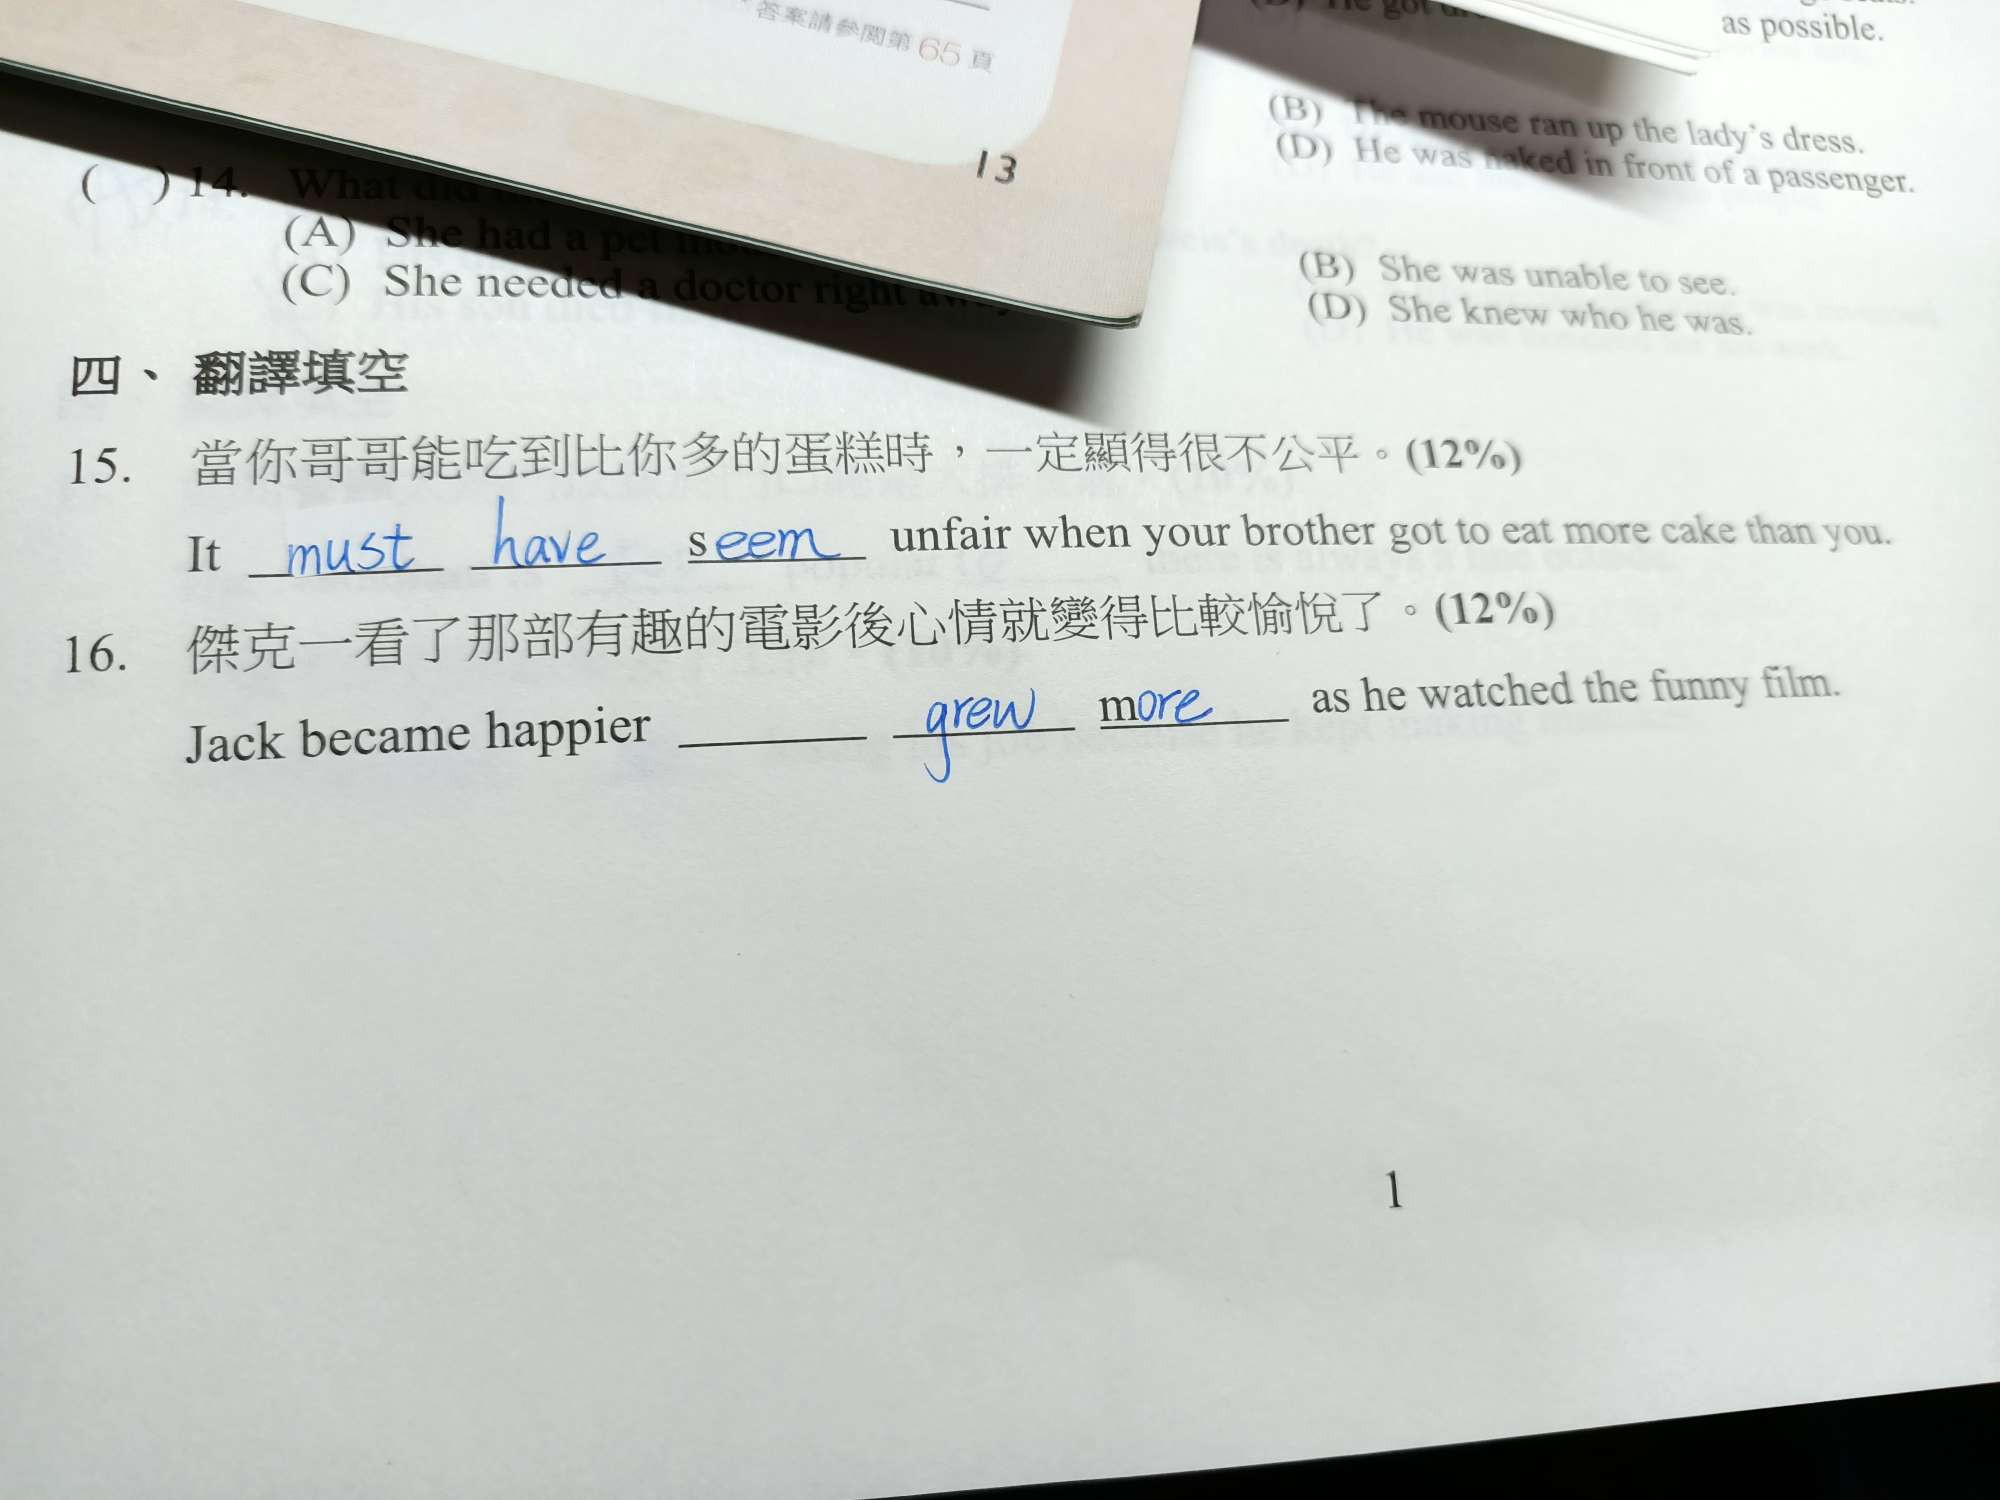 答案請參閱第 65 頁
13
as possible.
(B) The mouse ran up the lady's dress.
(D) He was naked in front of a passenger.
( ) 14. What did
(A) She had a pet
(B) She was unable to see.
(C) She needed a doctor right
(D) She knew who he was.
四、翻譯填空
15. 當你哥哥能吃到比你多的蛋糕時，一定顯得很不公平。(12%)
It must have seem unfair when your brother got to eat more cake than you.
16. 傑克一看了那部有趣的電影後心情就變得比較愉悅了。(12%)
Jack became happier ______ grew more as he watched the funny film.
1